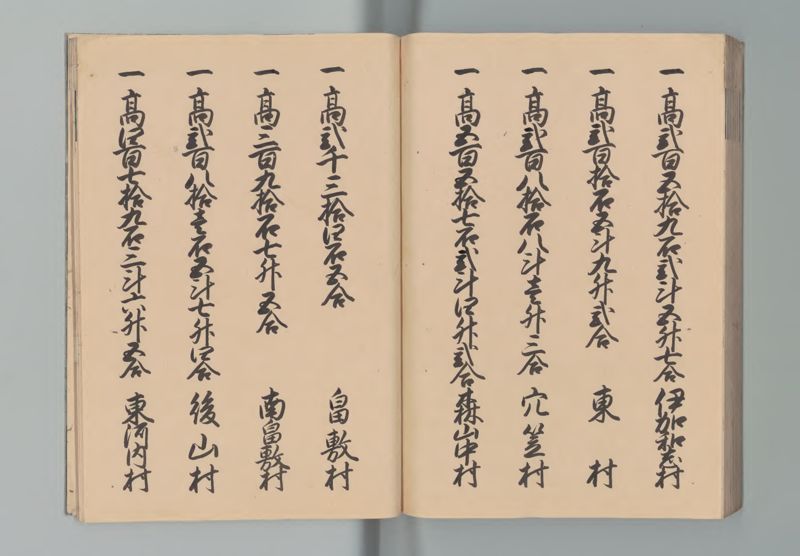 一高弐百五拾九石弐斗五升七合 伊加和志村
一高弐百拾石五斗九升弐合 東村
一高弐百八拾石八斗壱升三合 穴笠村
一高五百五拾七石弐斗四升弐合 森山中村
一高弐千三拾四石五合 畠敷村
一高三百九拾石七升五合 南畠敷村
一高弐百八拾壱石五斗七升四合 後山村
一高四百七拾九石三斗六升五合 東河内村